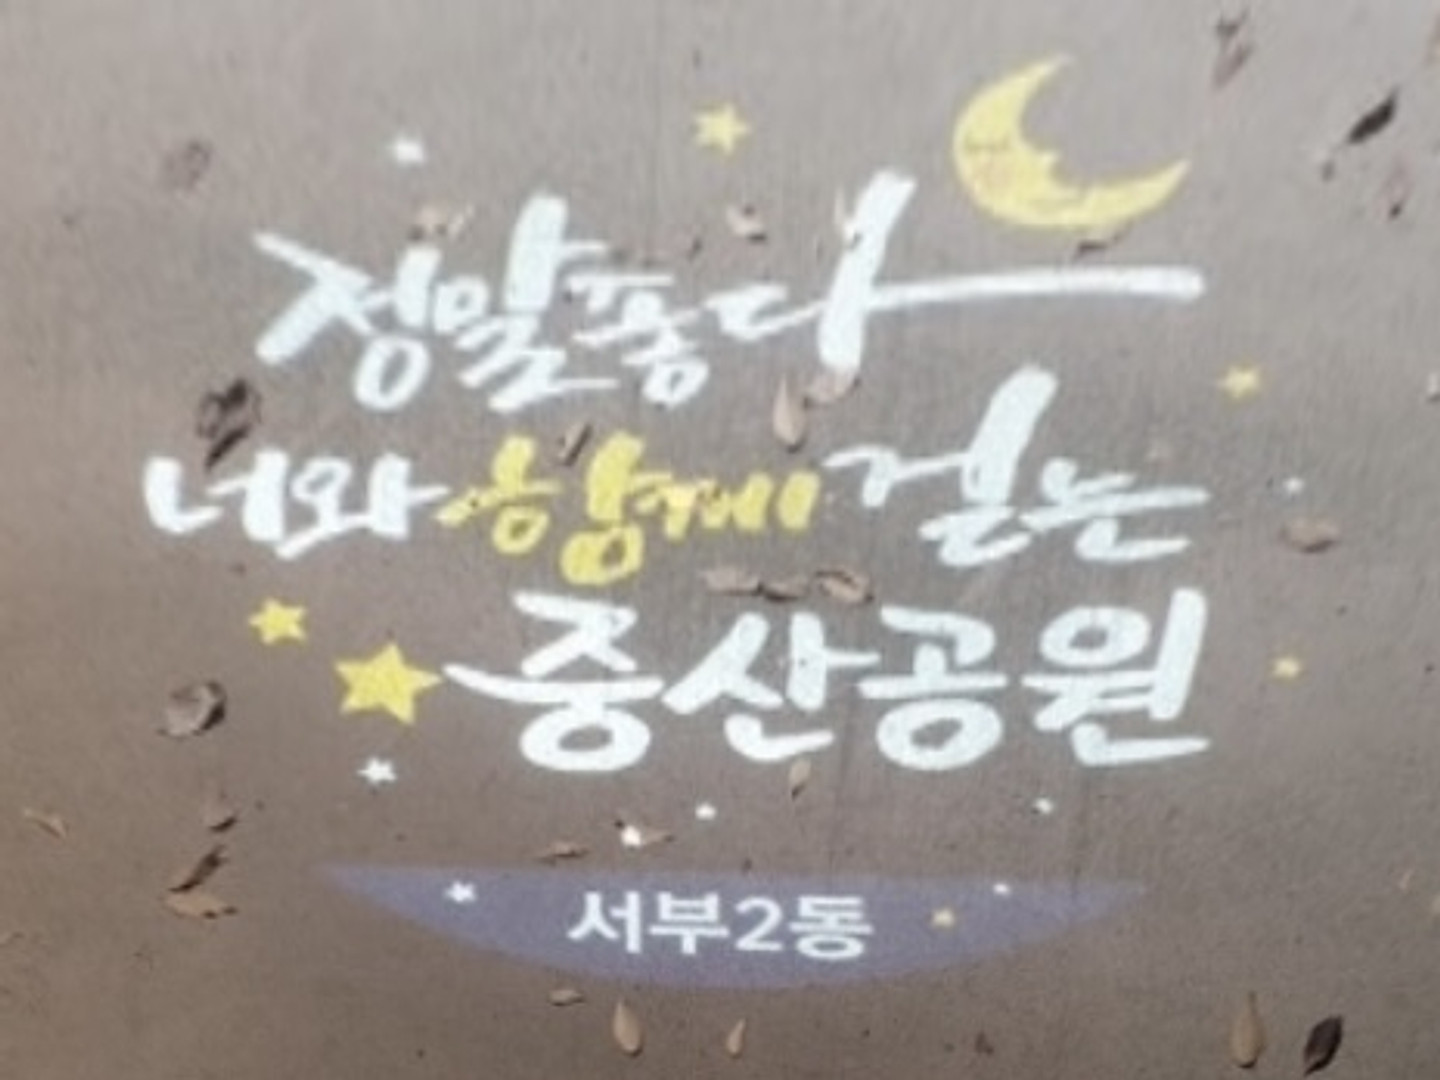 정말 좋다
너와 함께 걷는
중산공원
서부2동